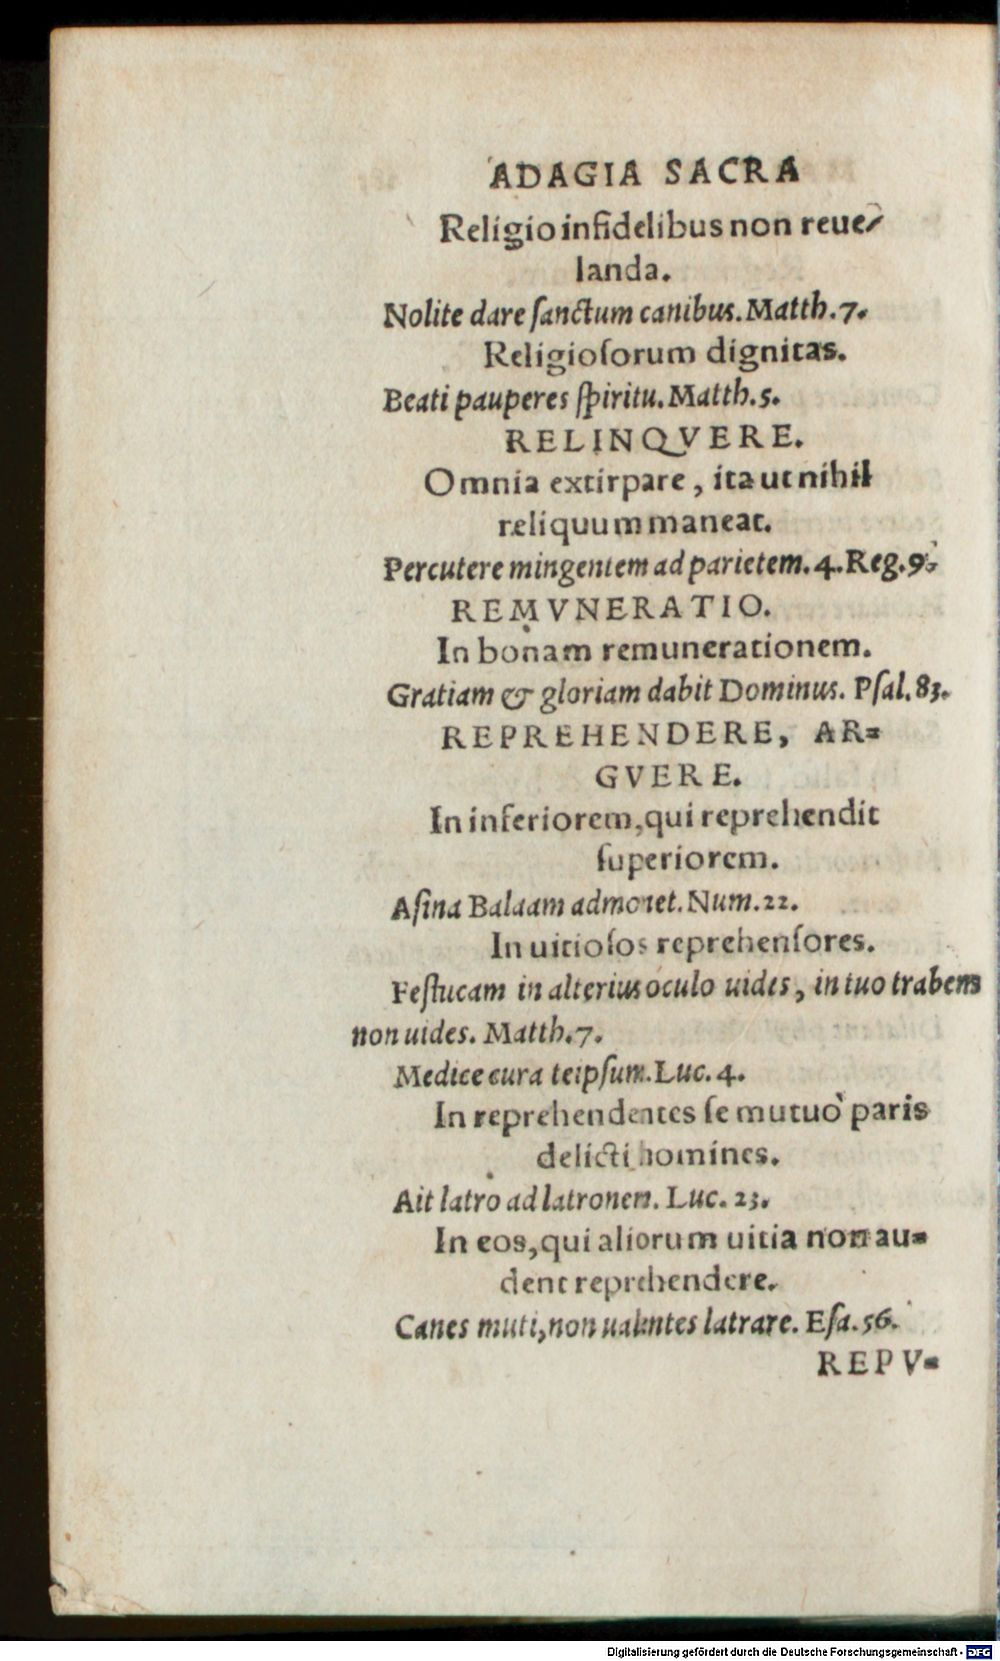 ADAGIA SACRA
Religio infidelibus non reue-
landa.
Nolite dare ſanctum canibus. Matth. 7.
Religioſorum dignitas.
Beati pauperes ſpiritu. Matth. 5.
RELINQVERE.
Omnia extirpare, ita ut nihil
reliquum maneat.
Percutere mingentem ad parietem. 4. Reg. 9.
REMVNERATIO.
In bonam remunerationem.
Gratiam & gloriam dabit Dominus. Pſal. 83.
REPREHENDERE, AR=
GVERE.
In inferiorem, qui reprehendit
ſuperiorem.
Aſina Balaam admonet. Num. 22.
In uitioſos reprehenſores.
Feſtucam in alterius oculo uides, in tuo trabem
non uides. Matth. 7.
Medice cura teipſum. Luc. 4.
In reprehendentes ſe mutuò paris
delicti homines.
Ait latro ad latronem. Luc. 23.
In eos, qui aliorum uitia non au=
dent reprehendere.
Canes muti, non ualentes latrare. Eſa. 56.
REPV=
Digitalisierung gefördert durch die Deutsche Forschungsgemeinschaft - DFG